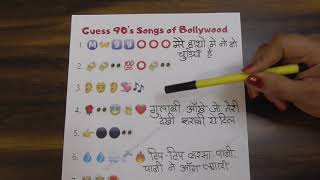 Guess 90's Songs of Bollywood
1.
मेरे हाथों में नौ नौ
चुड़ियाँ है
2.
100
3.
4.
गुलाबी आँखें जो तेरी
देखी शराबी ये दिल
5.
6.
टिप-टिप बरसा पानी
पानी ने आग लगादी
7.